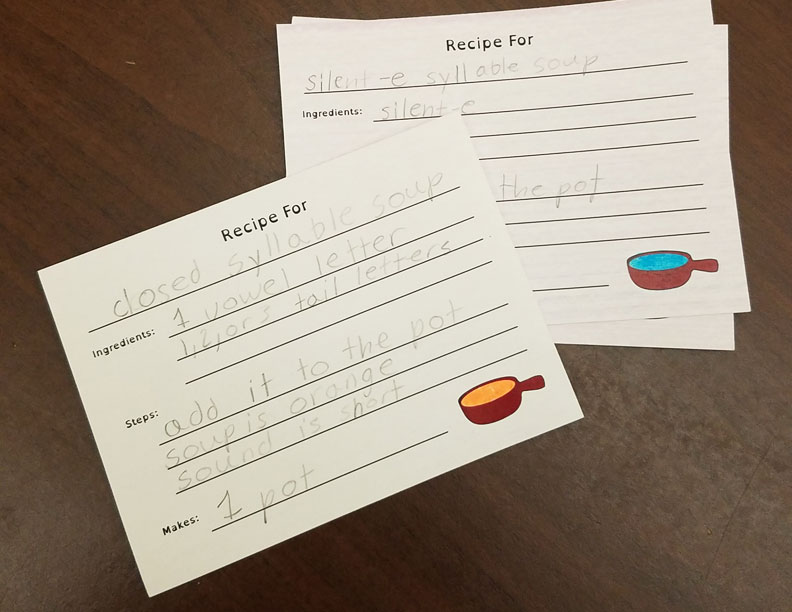 Recipe For
silent-e syllable soup
Ingredients: silent-e
the pot
Recipe For
closed syllable soup
Ingredients: 1 vowel letter
1, 2, or 3 tail letters
Steps: add it to the pot
soup is orange
sound is short
Makes: 1 pot